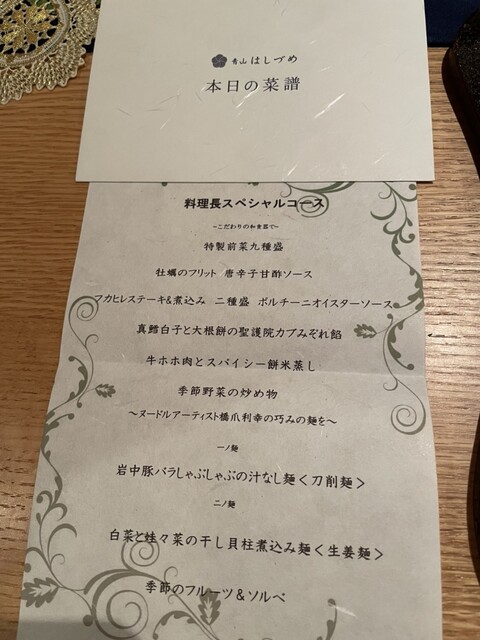 青山 はしづめ
本日の菜譜
料理長スペシャルコース
~こだわりの和食器で~
特製前菜九種盛
牡蠣のフリット 唐辛子甘酢ソース
フカヒレステーキ&煮込み 二種盛 ポルチーニオイスターソース
真鱈白子と大根餅の聖護院カブみぞれ餡
牛ホホ肉とスパイシー餅米蒸し
季節野菜の炒め物
～ヌードルアーティスト橋爪利幸の巧みの麺を～
一ノ麺
岩中豚バラしゃぶしゃぶの汁なし麺<刀削麺>
二ノ麺
白菜と娃々菜の干し貝柱煮込み麺<生姜麺>
季節のフルーツ&ソルベ